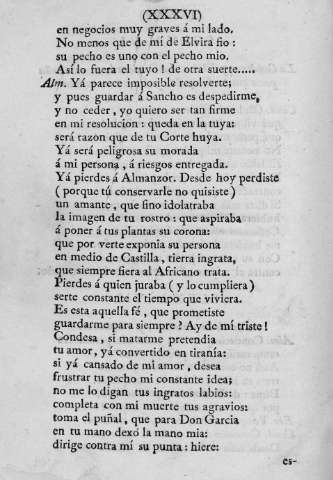 (XXXVI)
en negocios muy graves á mi lado.
No menos que de mí de Elvira fio:
su pecho es uno con el pecho mio.
Así lo fuera el tuyo! de otra suerte.....
Alm. Yá parece imposible resolverte;
y pues guardar á Sancho es despedirme,
y no ceder, yo quiero ser tan firme
en mi resolucion: queda en la tuya:
será razon que de tu Corte huya.
Yá será peligrosa su morada
á mi persona, á riesgos entregada.
Yá pierdes á Almanzor. Desde hoy perdiste
(porque tú conservarle no quisiste)
un amante, que fino idolatraba
la imagen de tu rostro: que aspiraba
á poner á tus plantas su corona:
que por verte exponia su persona
en medio de Castilla, tierra ingrata,
que siempre fiera al Africano trata.
Pierdes á quien juraba (y lo cumpliera)
serte constante el tiempo que viviera.
Es esta aquella fé, que prometiste
guardarme para siempre? Ay de mí triste!
Condesa, si matarme pretendia
tu amor, yá convertido en tiranía:
si yá cansado de mi amor, desea
frustrar tu pecho mi constante idea;
no me lo digan tus ingratos labios:
completa con mi muerte tus agravios:
toma el puñal, que para Don Garcia
en tu mano dexó la mano mia:
dirige contra mí su punta: hiere:
es-